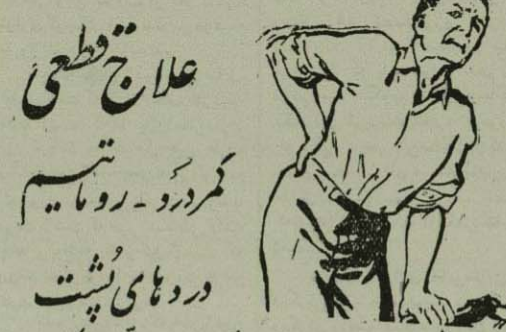 علاج قطعی
کمردرد - روماتیسم
دردهای پشت